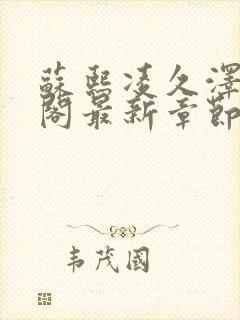 蘇熙凌久澤
閣最新章節
韦茂國